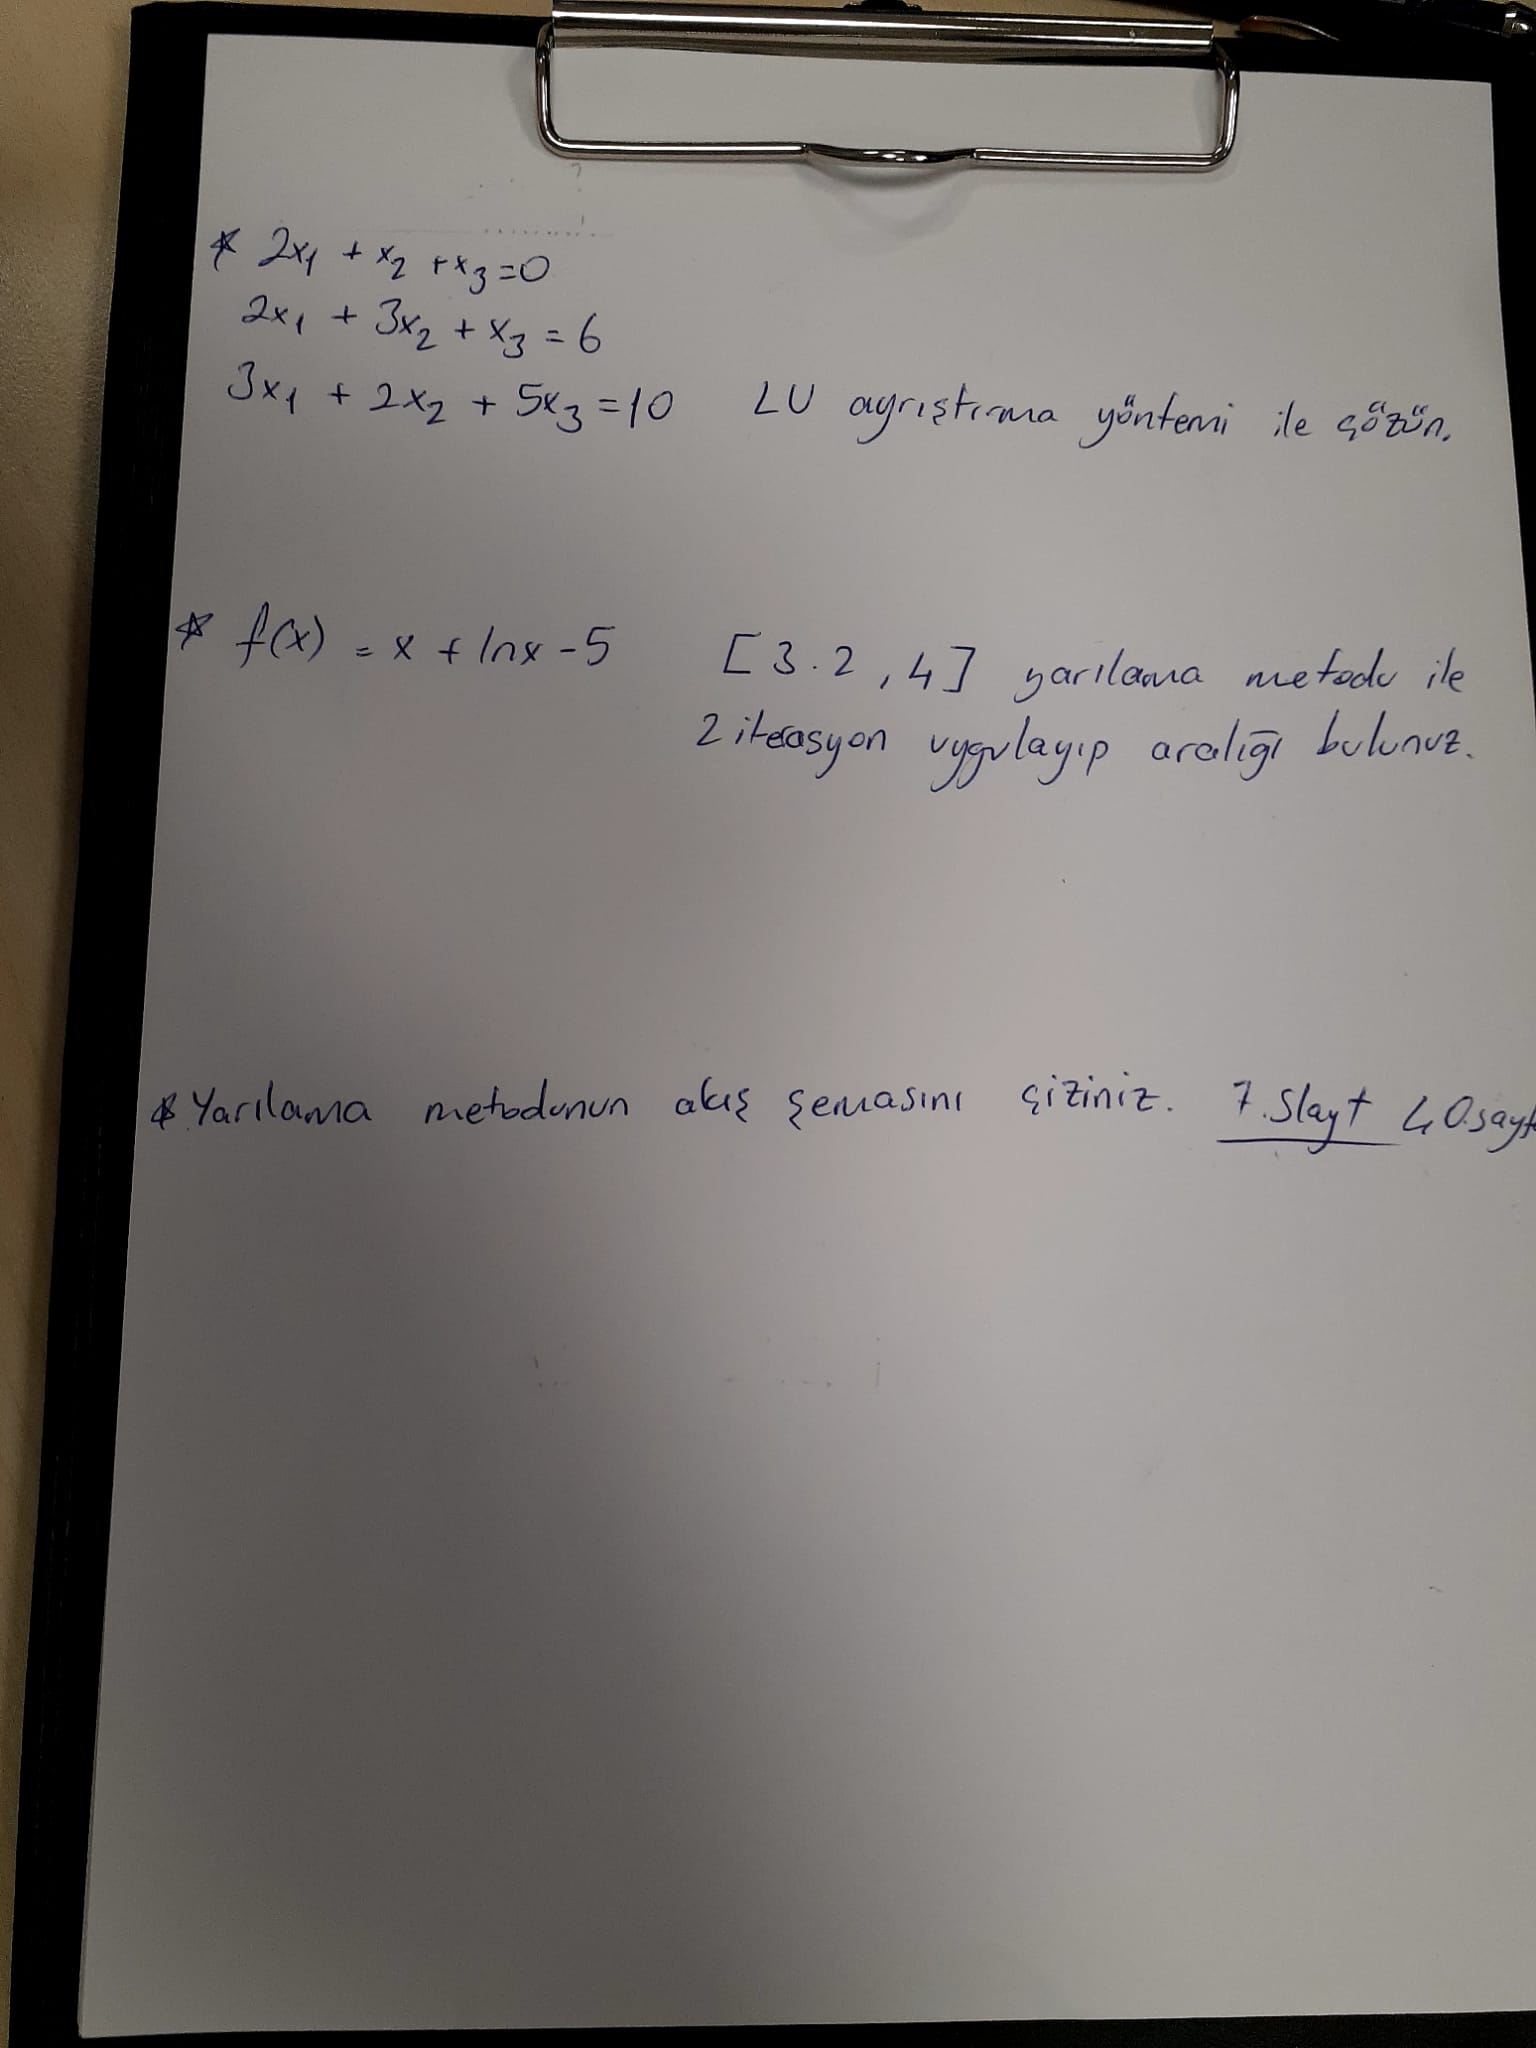 * 2x₁ + x₂ + x₃ = 0
2x₁ + 3x₂ + x₃ = 6
3x₁ + 2x₂ + 5x₃ = 10 LU ayrıştırma yöntemi ile çözün.
* f(x) = x + lnx - 5 [3.2, 4] yarılama metodu ile
2 iterasyon uygulayıp aralığı bulunuz.
* Yarılama metodunun akış şemasını çiziniz. 7. Slayt 40.sayfa